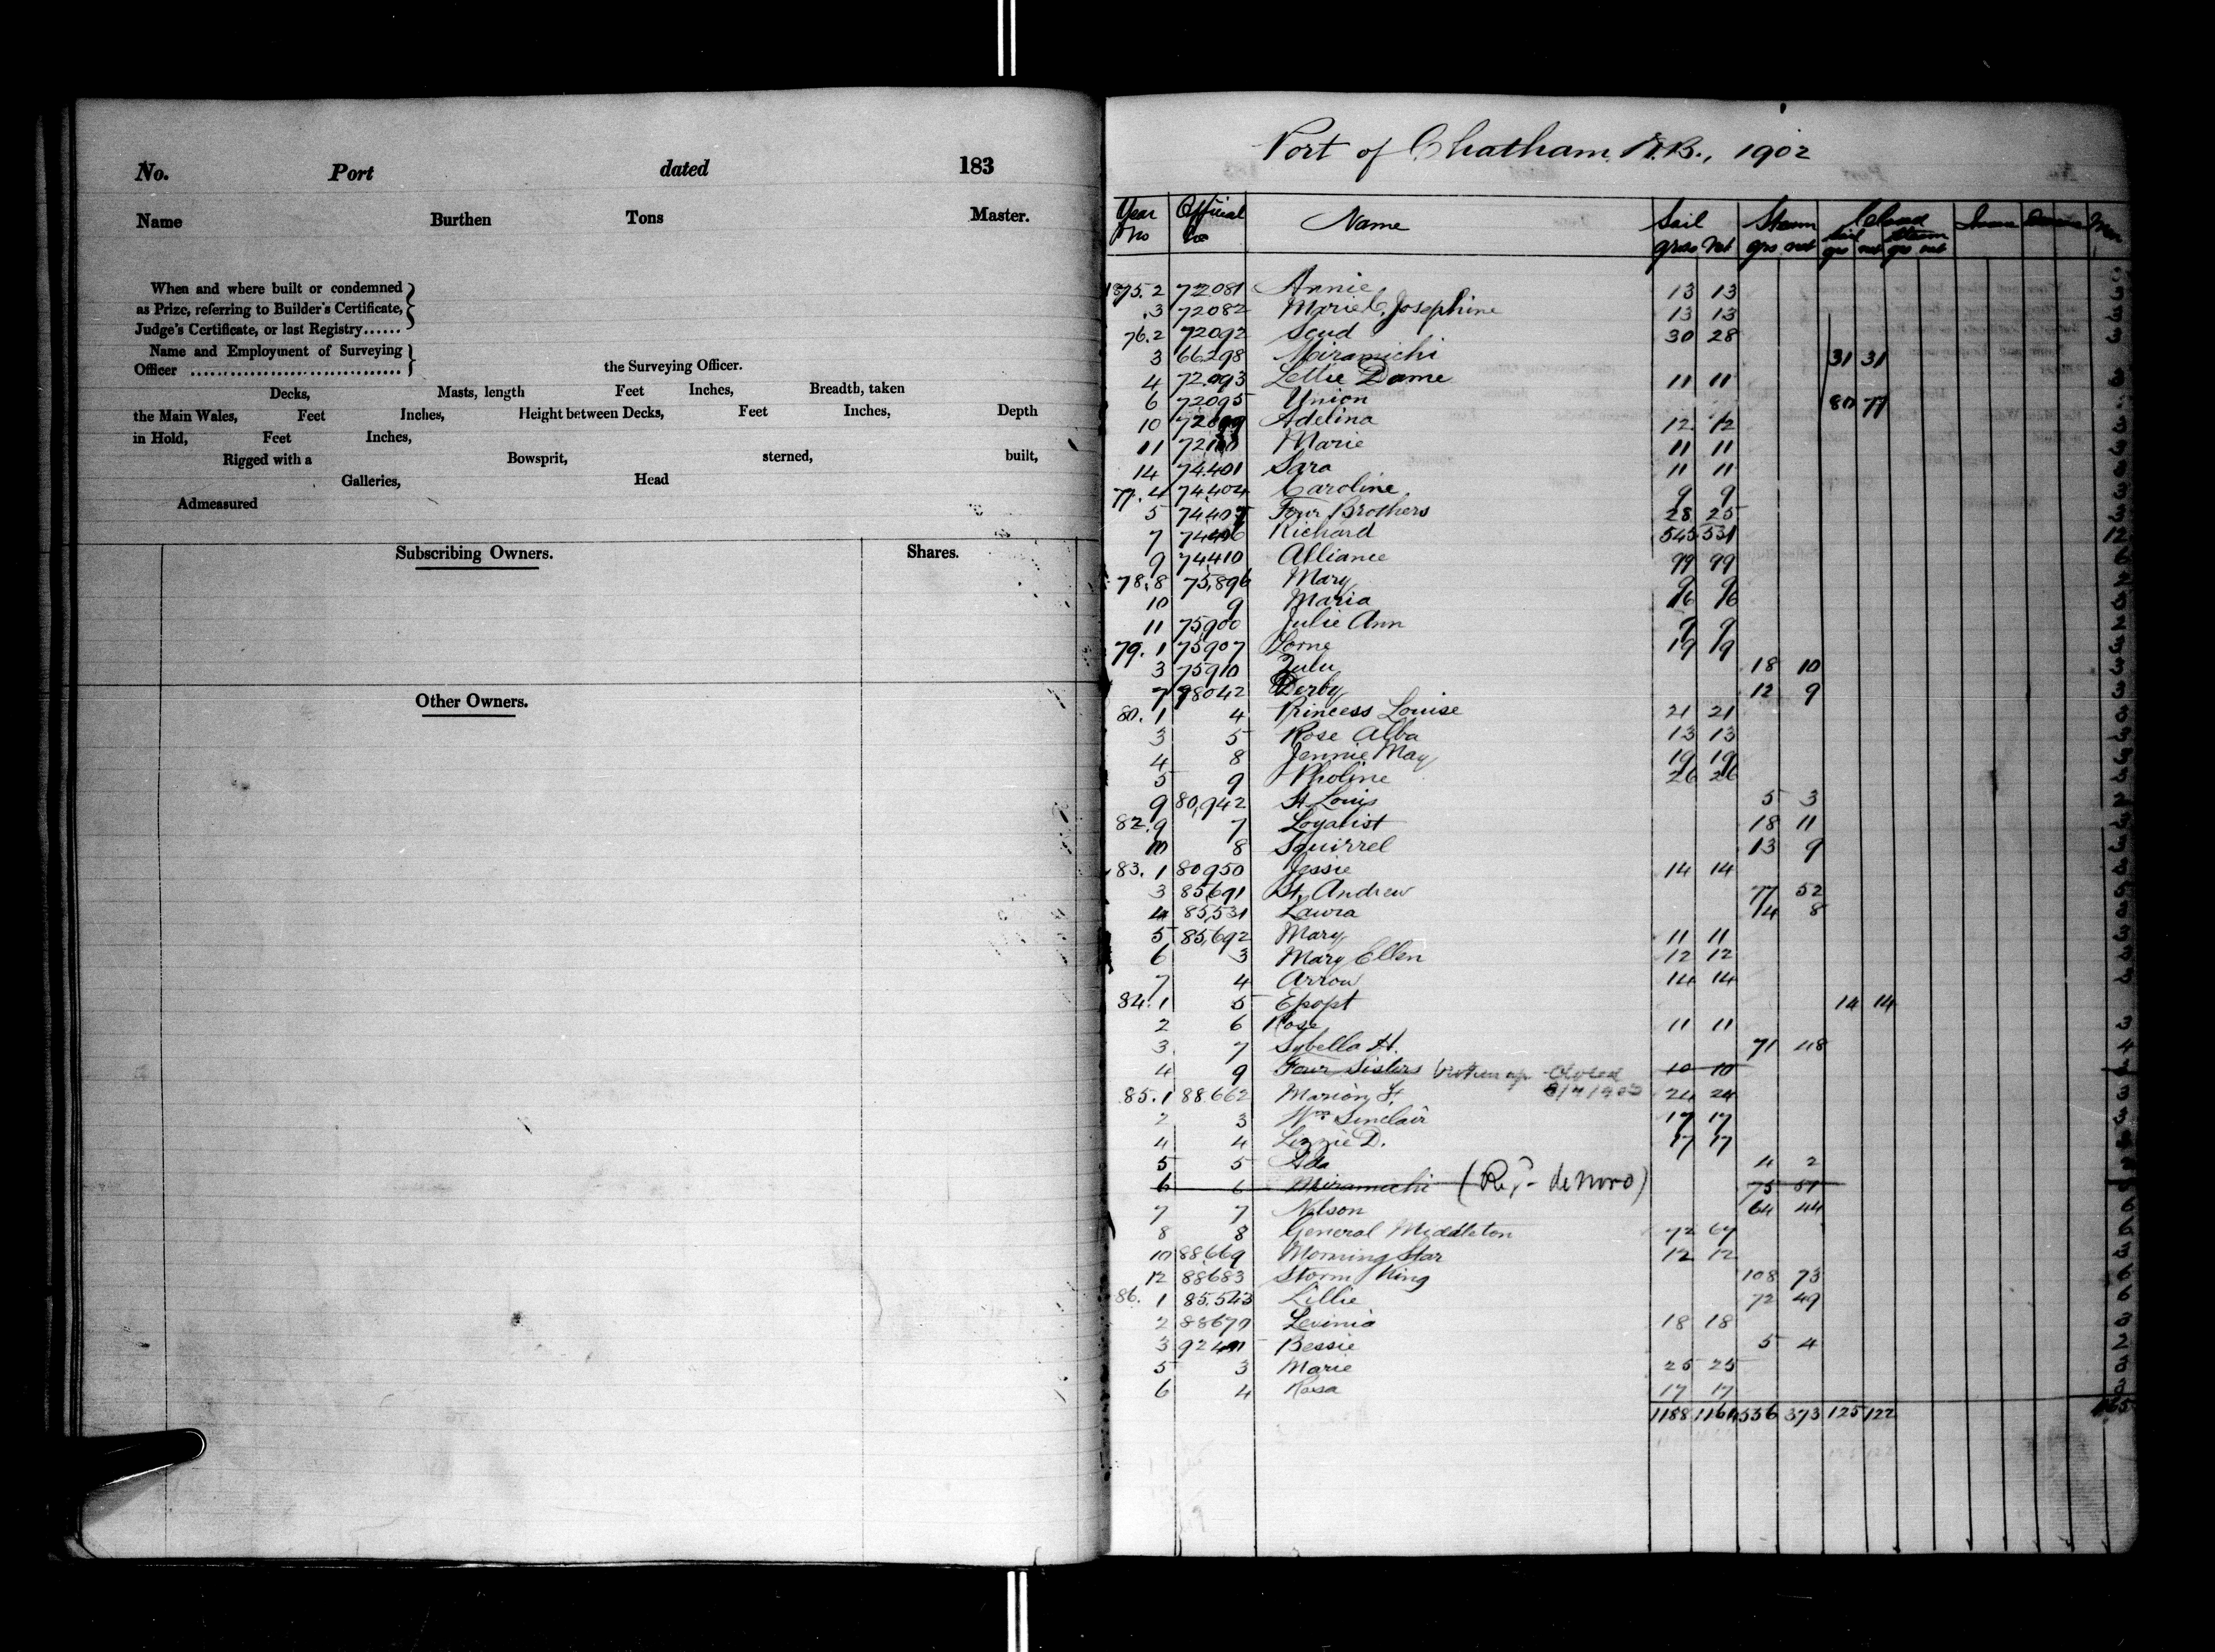 No. Port dated 183
Name Burthen Tons Master.
When and where built or condemned
as Prize, referring to Builder's Certificate,
Judge's Certificate, or last Registry......
Name and Employment of Surveying
Officer ................................ the Surveying Officer.
Decks, Masts, length Feet Inches, Breadth, taken
the Main Wales, Feet Inches, Height between Decks, Feet Inches, Depth
in Hold, Feet Inches,
Rigged with a Bowsprit, sterned, built,
Galleries, Head
Admeasured
Subscribing Owners. Shares.
Other Owners.
Port of Chatham N.B., 1902
Year Official Name Sail Steam Closed
No No gross net grs net Sail Steam
grs net grs net
1875.2 72081 Annie 13 13 3
.3 72082 Marie C. Josephine 13 13 3
76.2 72092 Scud 30 28 3
3 66298 Miramichi 31 31
4 72093 Lettie Dame 11 11 3
6 72095 Union 80 77
10 72099 Adelina 12 12 3
11 72100 Marie 11 11 3
14 74401 Sara 11 11 3
77.4 74404 Caroline 9 9 3
5 74407 Four Brothers 28 25 3
7 74406 Richard 545 531 12
9 74410 Alliance 99 99
78.8 75,896 Mary 9 9
10 9 Maria 16 16
11 75,900 Julie Ann 9 9
79.1 75907 Lorne 19 19 3
3 75910 Zulu 18 10 3
7 78042 Derby 12 9 3
80.1 4 Princess Louise 21 21 3
3 5 Rose Alba 13 13 3
4 8 Jennie May 19 19 3
5 9 Pholine 26 26 3
9 80,942 St. Louis 5 3 2
82.9 7 Loyalist 18 11 3
10 8 Squirrel 13 9 3
83.1 80950 Jessie 14 14 3
3 85,691 St. Andrew 77 52
4 85,531 Laura 14 8
5 85,692 Mary 11 11 3
6 3 Mary Ellen 12 12 3
7 4 Arrow 14 14 3
84.1 5 Epopt 14 14
2 6 Rose 11 11 3
3. 7 Sybella H. 71 48 4
4 9 Four Sisters broken up Closed 10 10
85.1 88.662 Marion F. 24 24 3
2 3 Wm Sinclair 17 17 3
4 4 Lizzie D. 17 17 3
5 5 Ada 4 2
6 6 Miramichi (Reg- de novo) 75 51
7 7 Nelson 64 44
8 8 General Middleton 72 67
10 88669 Morning Star 12 12 3
12 88683 Storm King 108 73
86. 1 85.543 Lillie 72 49
2 88670 Levinia 18 18 3
3 92401 Bessie 5 4 2
5 3 Marie 25 25 3
6 4 Rosa 17 17 3
1188 1164 556 373 125 122